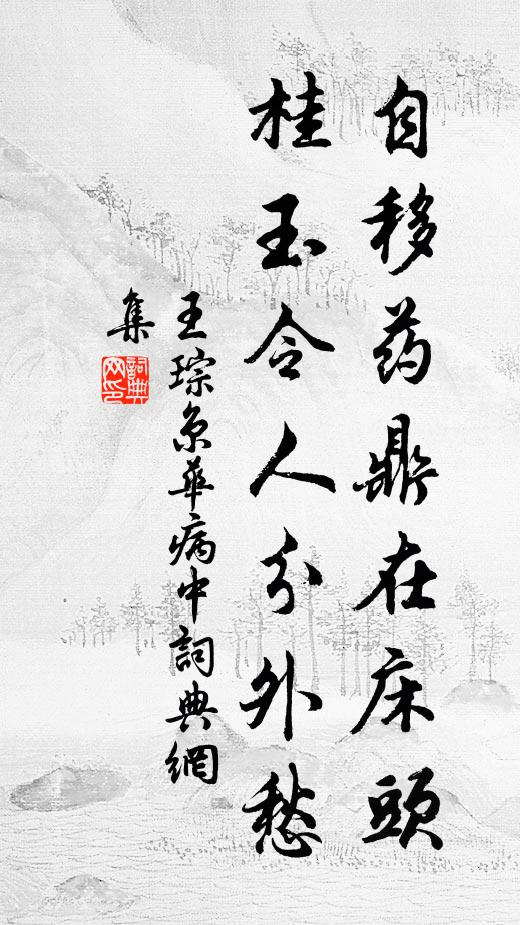 自移药鼎在床頭
桂玉令人分外愁
王琮京華病中詞典網
集
詞典
网印